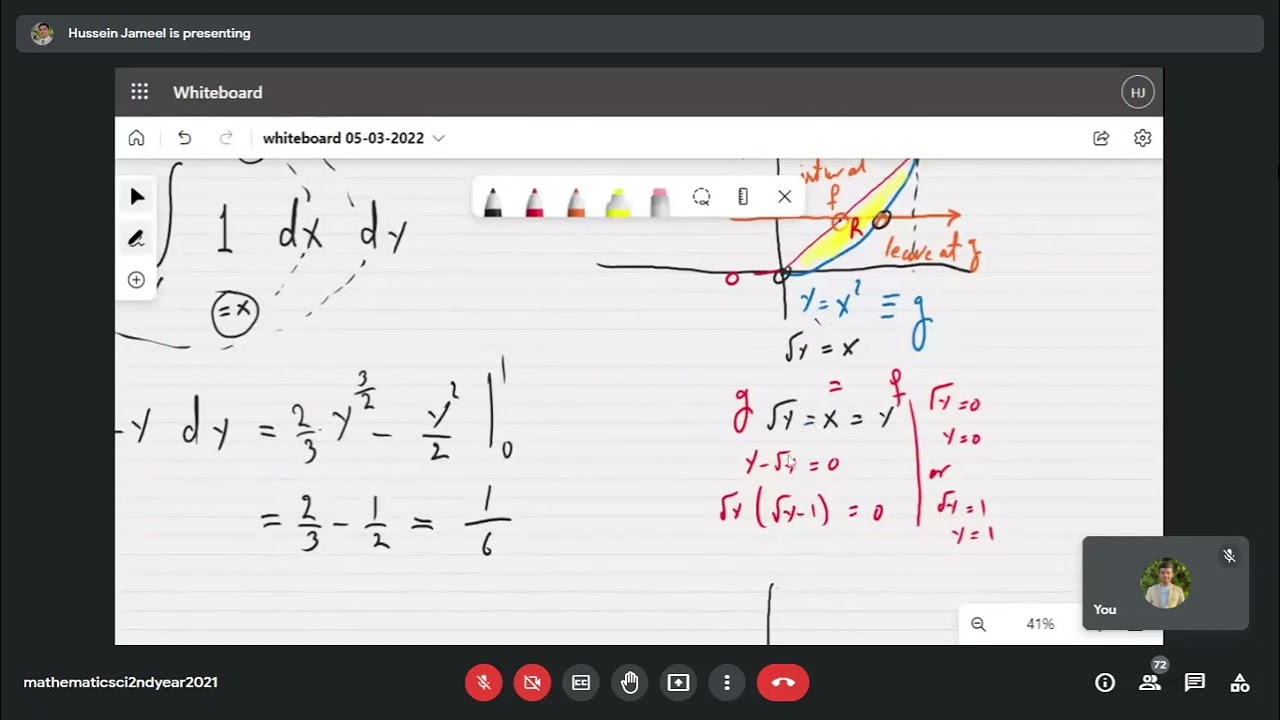 Hussein Jameel is presenting
Whiteboard
HJ
whiteboard 05-03-2022
∫ 1 dx dy
= x
-y dy = 2/3 · y^(3/2) - y²/2 |₀¹
= 2/3 - 1/2 = 1/6
f
R
leave at g
0
y = x² ≡ g
√y = x
g = f
√y = x = y
y - √y = 0
√y (√y - 1) = 0
√y = 0
y = 0
or
√y = 1
y = 1
You
41%
mathematicsci2ndyear2021
72